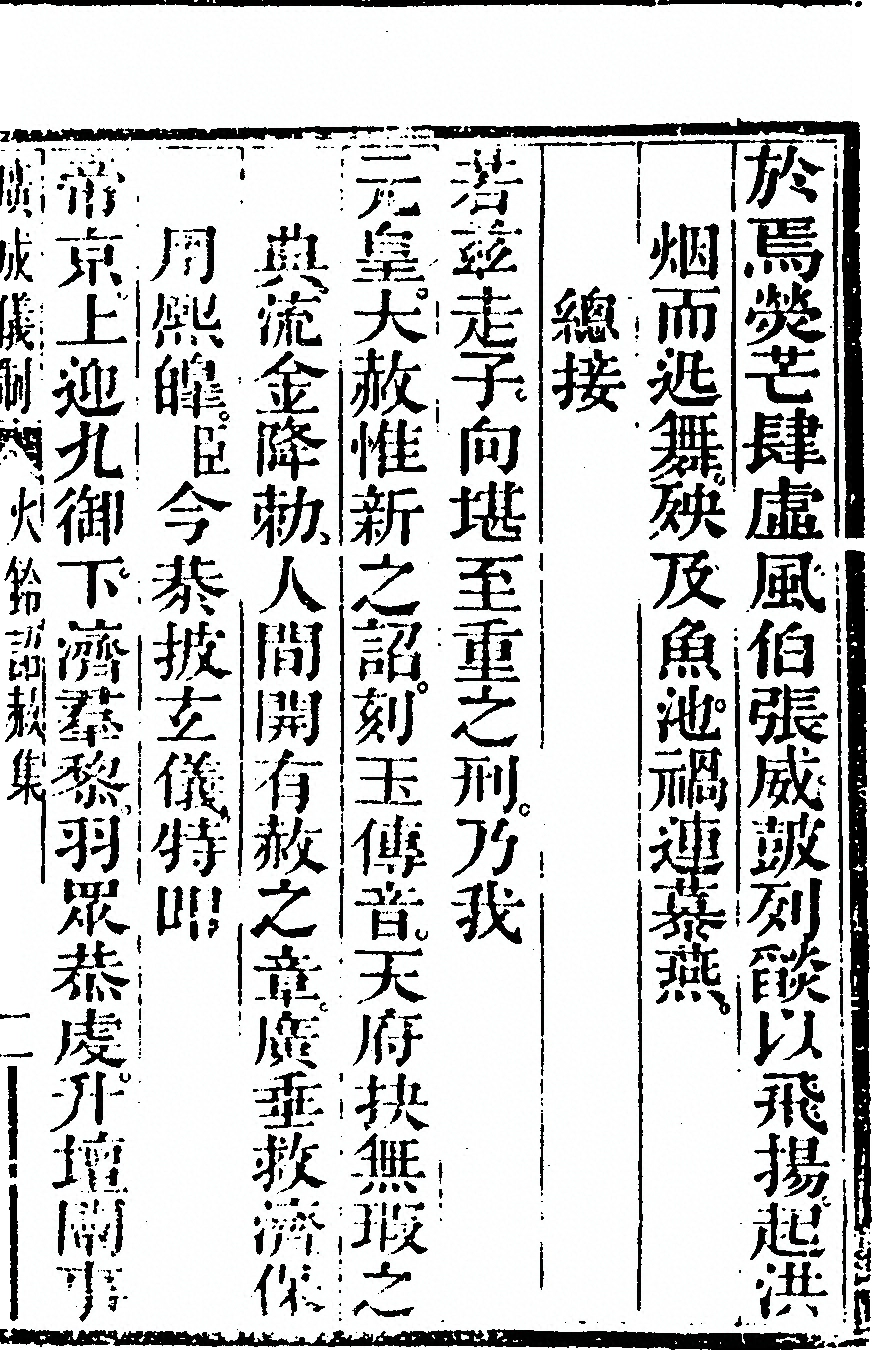 於焉熒芒肆虛風伯張威皷列燄以飛揚起洪
烟而迅舞。殃及魚池。禍連慕燕。
總接
若茲走子。向堪至重之刑。乃我
元皇。大赦惟新之詔。刻玉傳音。天府抉無瑕之
典。流金降勅、人間開有赦之章。廣垂救濟保
用熙皥。臣今恭披玄儀、特叩
帝京。上迎九御。下濟羣黎、羽眾恭虔。升壇闡事
廣成儀制 火鈴詔赦集 二